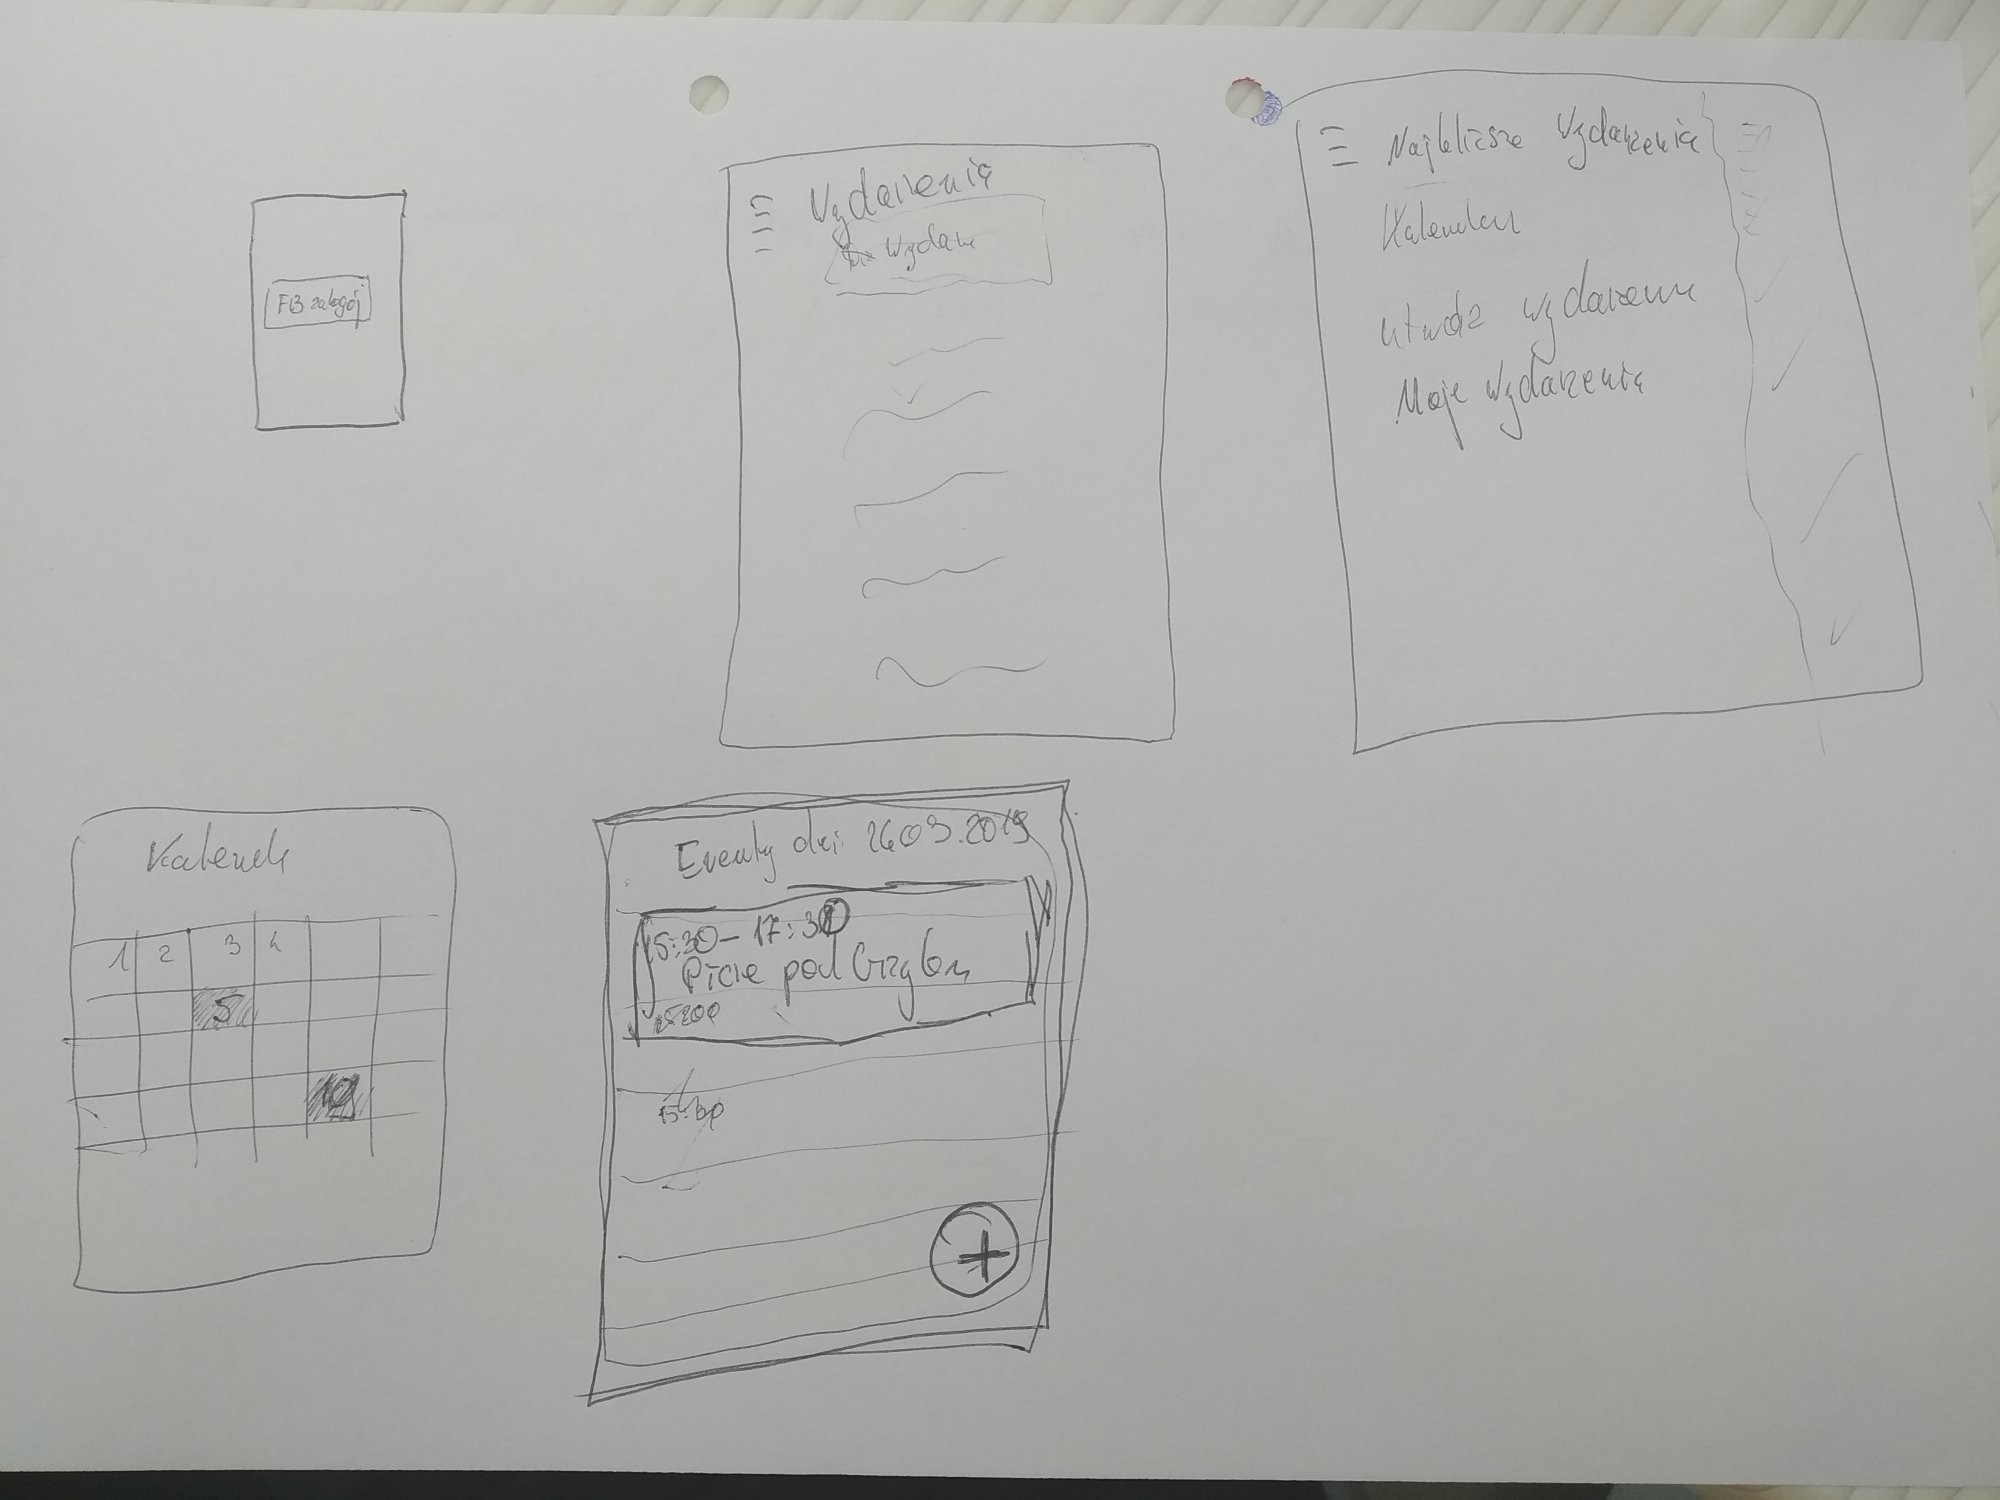 FB zaloguj
Wydarzenia
Wydarze
Najbliższe Wydarzenia
Kalendarz
utwórz wydarzenie
Moje wydarzenia
Kalenda
1 2 3 4
5
Eventy dni: 26.03.2019
15:30 - 17:30
Picie pod Grzybem
15:30